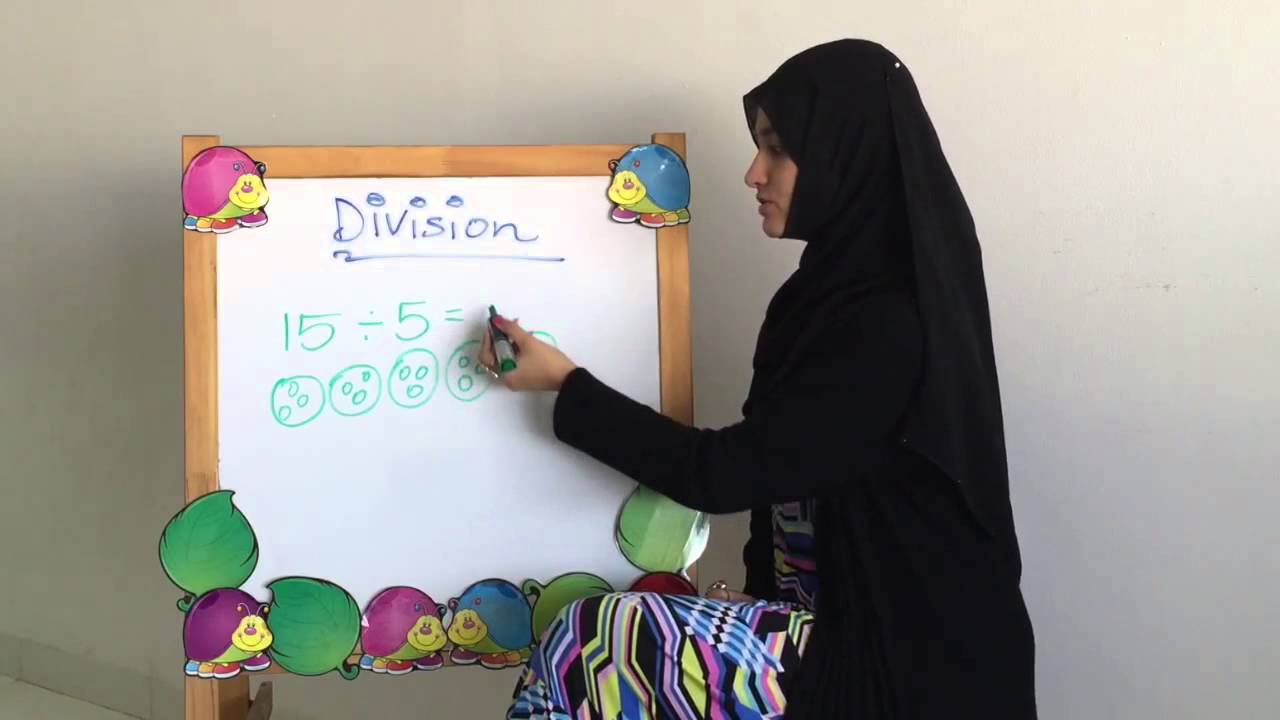 Division
15 ÷ 5 =